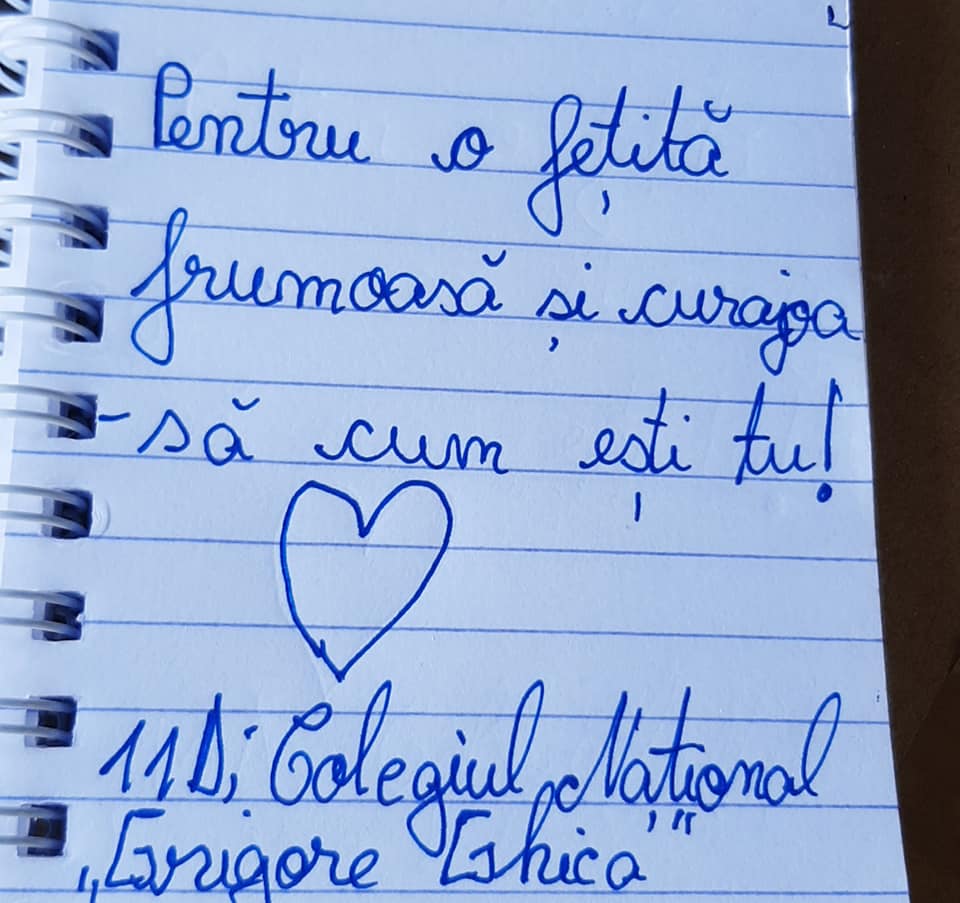 Pentru o fețită
frumoasă și curajoa
-să cum ești tu!
11D; Colegiul Național
„Grigore Ghica"